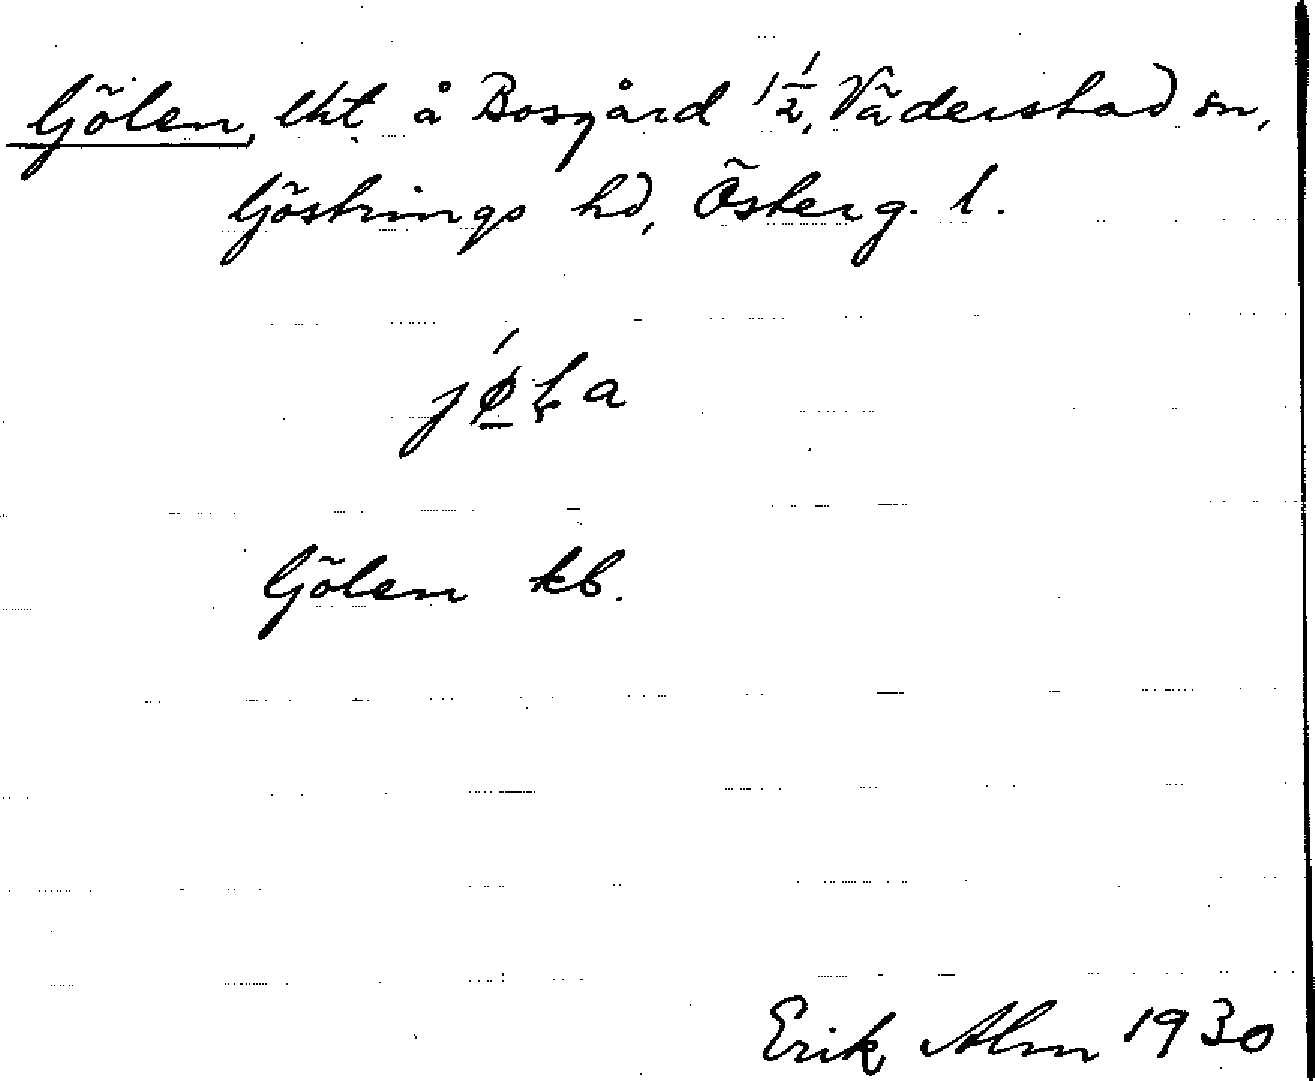 Gölen, lht å Bosgård 1 1/2, Väderstad sn,
Göstrings hd, Österg. l.
Gölen kb.
Erik Alm 1930